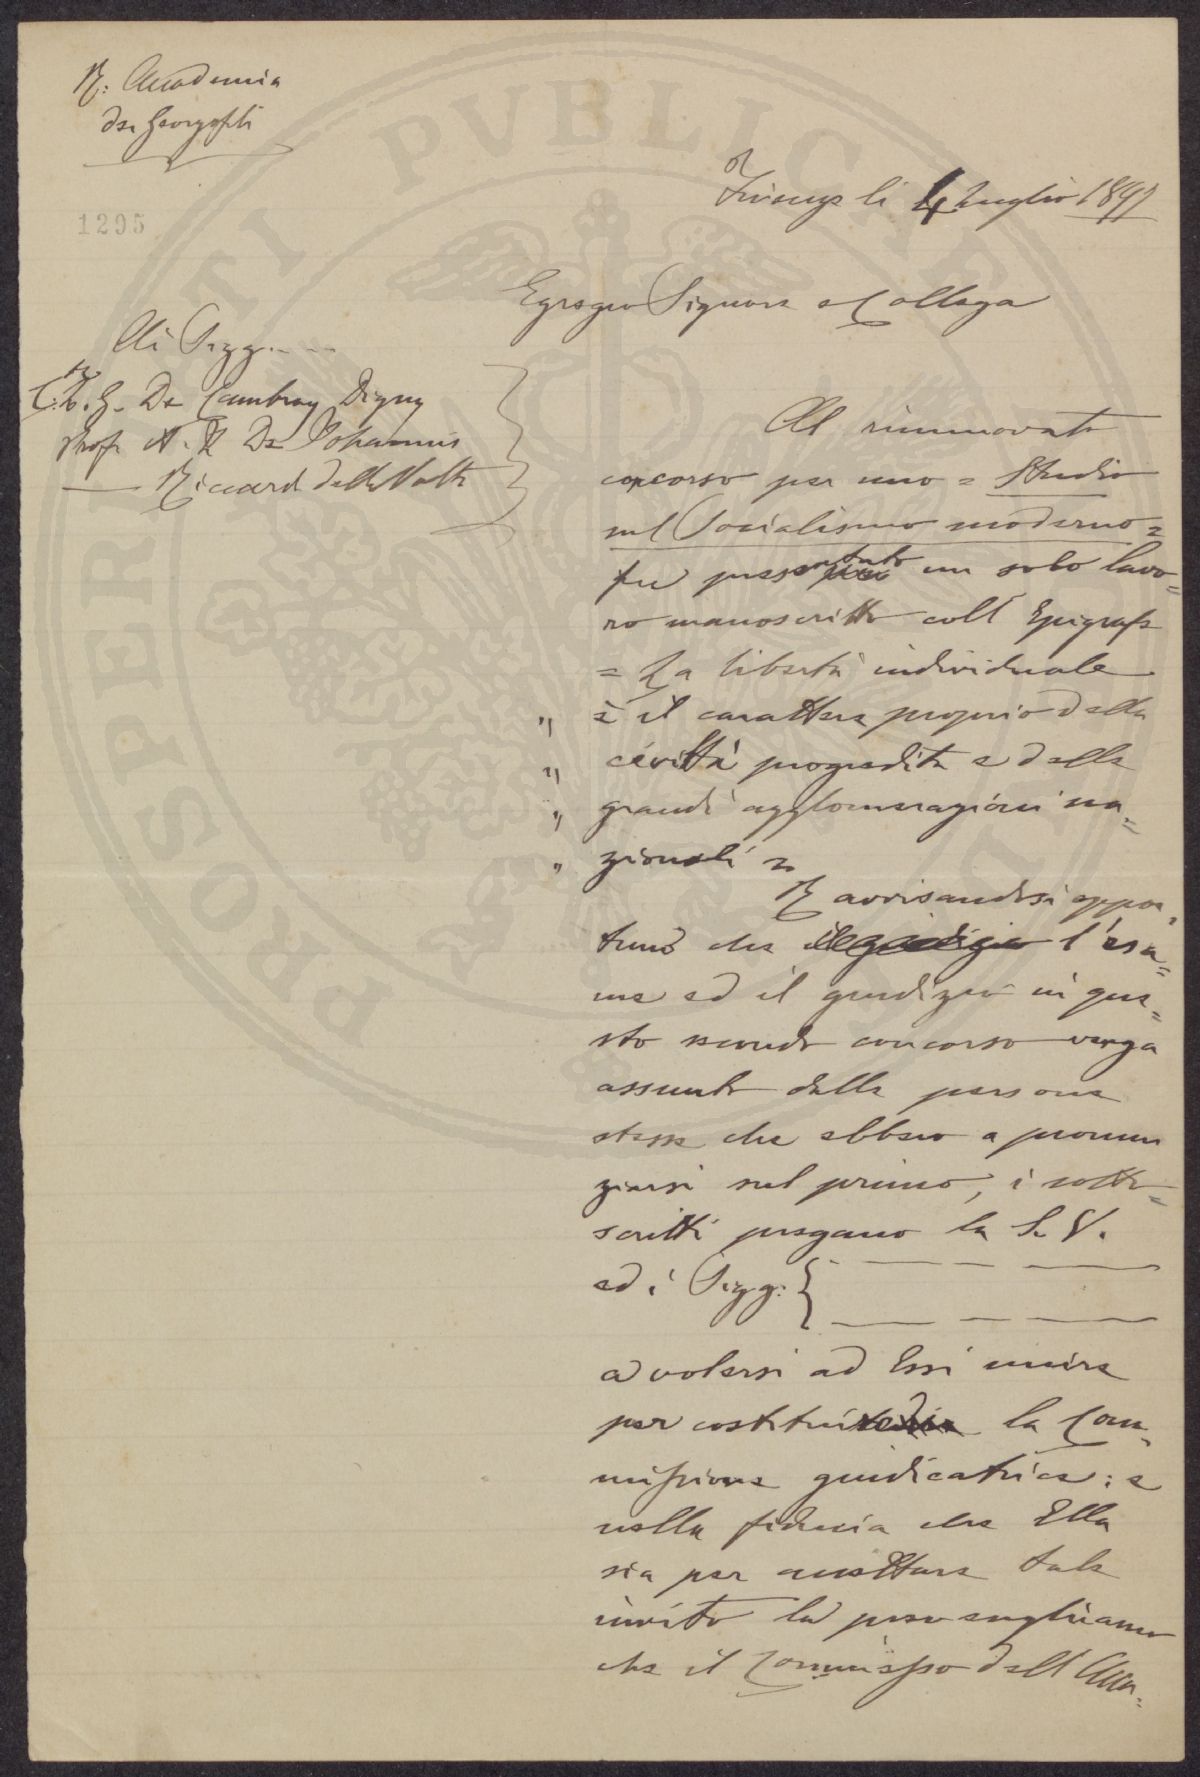 R. Accademia
dei Georgofili
Firenze li 4 Luglio 1897
1295
Egregio Signore e Collega
Ai Sigg.
C. L. G. De Cambray Digny
Prof. A. J. De Johannis
— Riccardo Dalla Volta
Al rinnovato
concorso per uno = Studio
sul Socialismo moderno =
fu presentato un solo lavo=
ro manoscritto coll' Epigrafe
= La libertà individuale
" è il carattere proprio della
" civiltà progredita e delle
" grandi agglomerazioni na=
" zionali =
Ravvisandosi oppor=
tuno che il giudizio l'esa=
me ed il giudizio in que=
sto secondo concorso venga
assunto dalle persone
stesse che ebbero a pronun
ziarsi sul primo, i sotto=
scritti pregano la S. V.
ed i Sigg: {
a volersi ad Essi unire
per costituire la Com=
missione giudicatrice: e
nella fiducia che Ella
sia per accettare tale
invito la preven
che il Commesso dell'Acca=
PROSPERITATI PVBLICAE